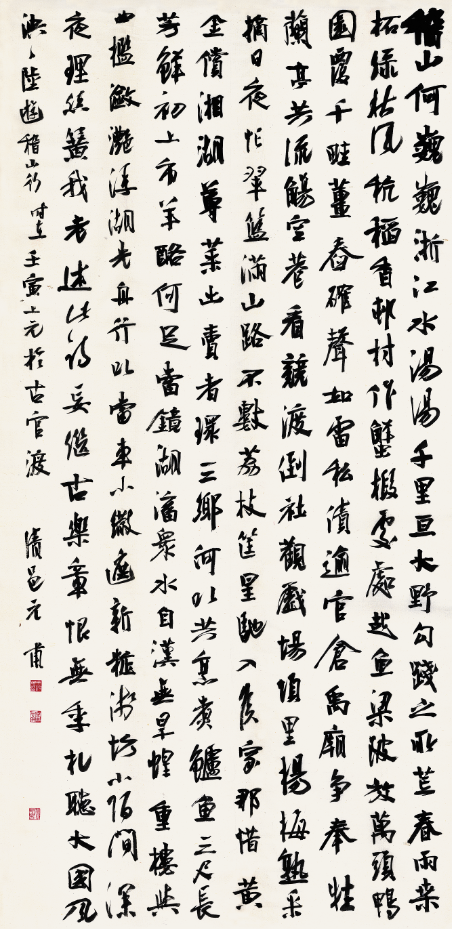 稽山何巍巍浙江水湯湯千里亘大野勾踐之所荒春雨桑
柘綠秋風秔稻香邨村作蟹椵處處起魚梁陂放萬頭鴨
園覆千畦薑舂碓聲如雷私債逾官倉禹廟爭奉牲
蘭亭共流觴空巷看競渡倒社觀戲場項里楊梅熟采
摘日夜忙翠籃滿山路不數荔枝筐星馳入侯家那惜黃
金償湘湖蓴菜出賣者環三鄉何以共烹煮鱸魚三尺長
芳鮮初上市羊酪何足當鏡湖滀衆水自漢無旱蝗重樓與
曲檻瀲灧浮湖光舟行以當車小繖遮新粧淺坊小陌間深
夜理絲簧我老述此詩妄繼古樂章恨無季札聽大國風
泱泱陸游稽山行時在壬寅上元於古官渡清邑元甫